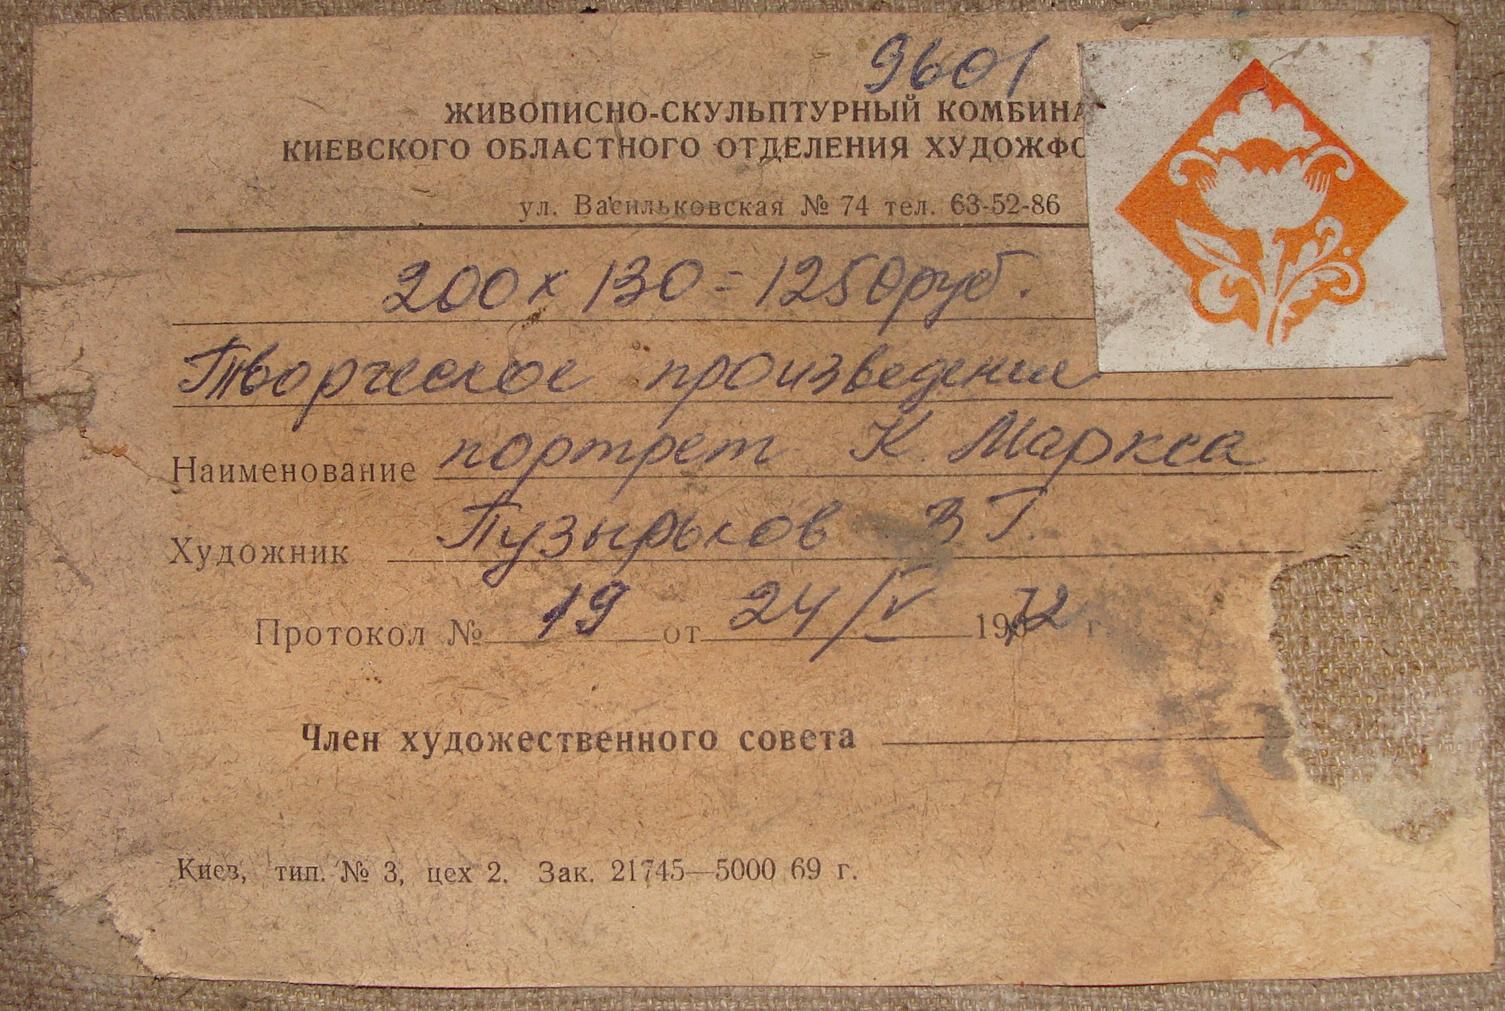 9601
ЖИВОПИСНО-СКУЛЬПТУРНЫЙ КОМБИНА
КИЕВСКОГО ОБЛАСТНОГО ОТДЕЛЕНИЯ ХУДОЖФО
ул. Васильковская № 74 тел. 63-52-86
200 х 130 = 1250 руб.
Творческое произведение
Наименование портрет К. Маркса
Художник Пузырьков В Г.
Протокол № 19 от 24/V 1972 г.
Член художественного совета
Киев, тип. № 3, цех 2. Зак. 21745—5000 69 г.